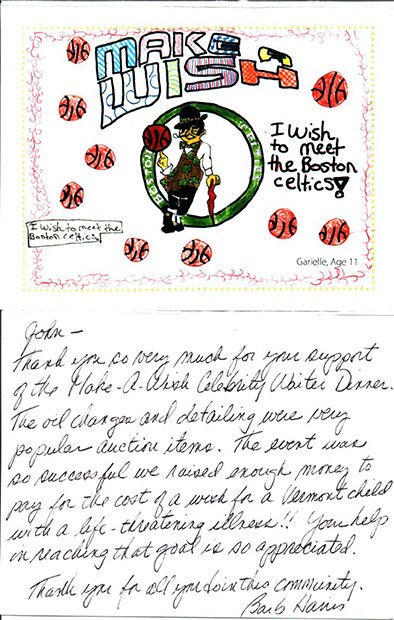 MAKE A
WISH
I wish
to meet
the Boston
celtics!
BOSTON CELTICS
I wish to meet the
Boston celtics
Garielle, Age 11
John —
Thank you so very much for your support
of the Make-A-Wish Celebrity Waiter Dinner.
The oil changes and detailing were very
popular auction items. The event was
so successful we raised enough money to
pay for the cost of a wish for a Vermont child
with a life-threatening illness!! Your help
in reaching that goal is so appreciated.
Thank you for all you do in this community.
Barb Harris